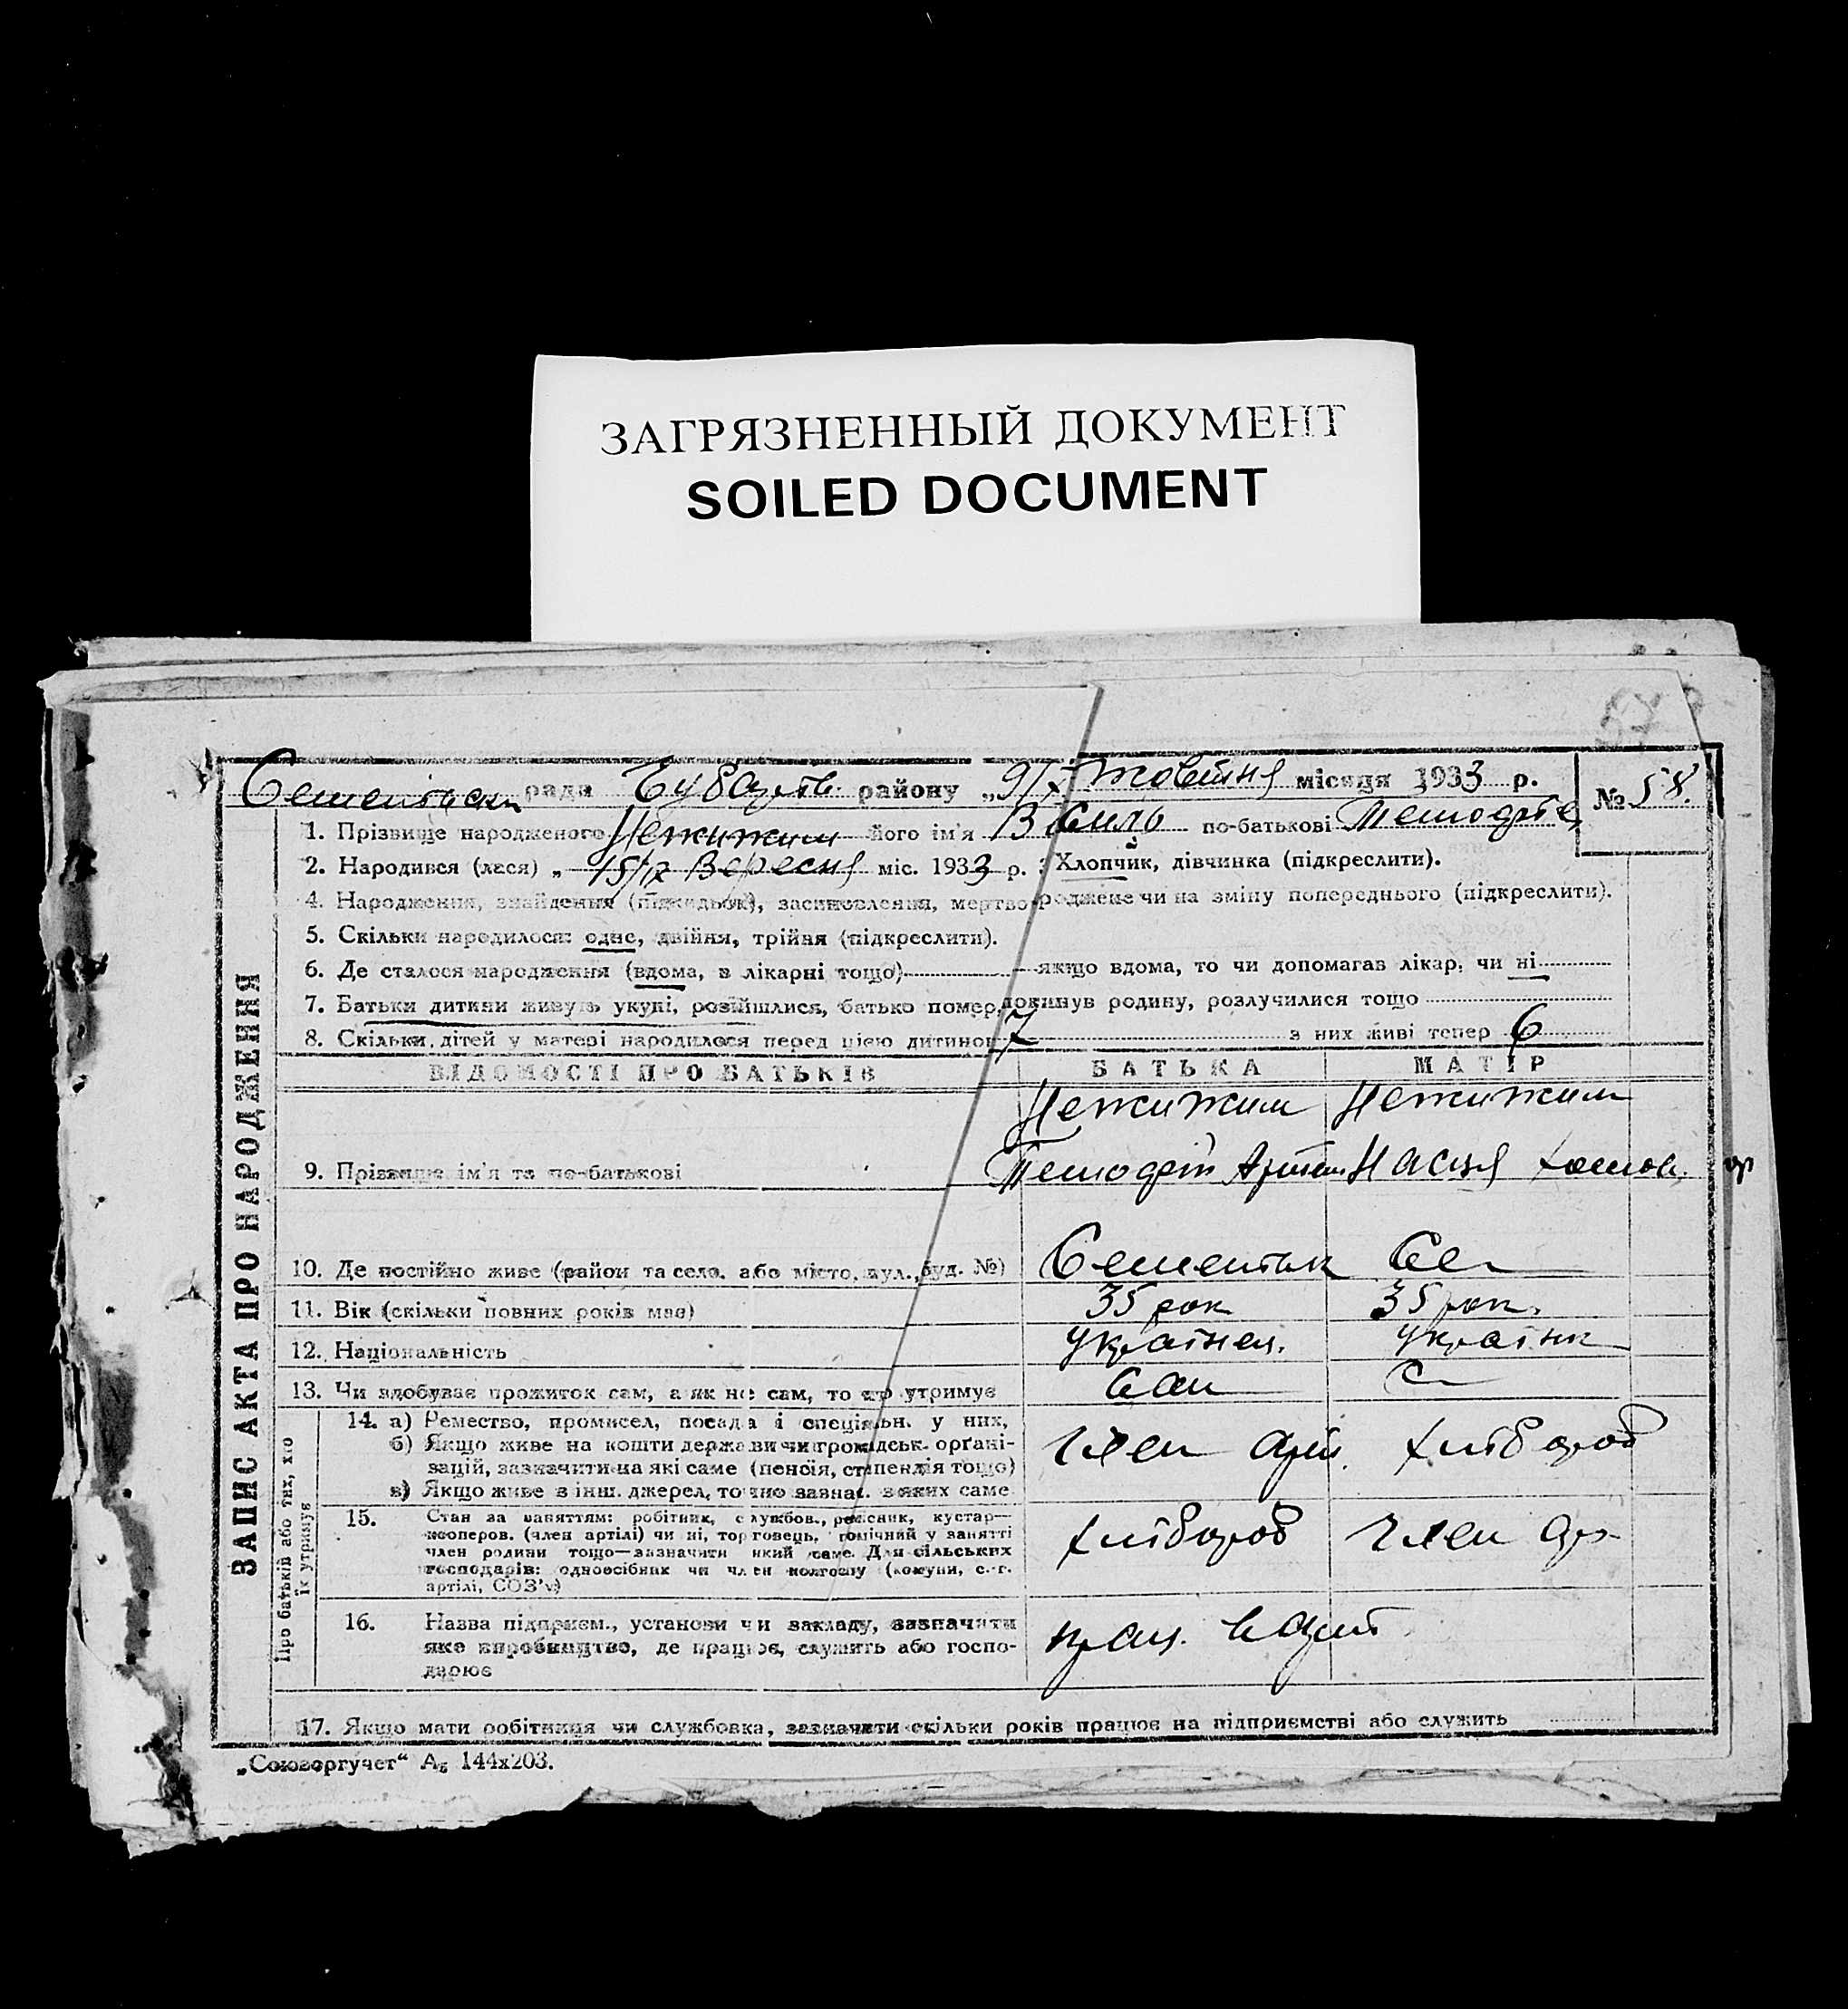 ЗАГРЯЗНЕННЫЙ ДОКУМЕНТ
SOILED DOCUMENT
рада району „9/X Жовтня місяця 1933 р. № 58.
ЗАПИС АКТА ПРО НАРОДЖЕННЯ
1. Прізвище народженого Нежижим його ім'я Василь по-батькові
2. Народився (лася) „ 15/IX Вересня міс. 1933 р. 3 Хлопчик, дівчинка (підкреслити).
4. Народження, знайдення (підкидьок), засиновлення, мертвороджене чи на зміну попереднього (підкреслити).
5. Скільки народилося: одне, двійня, трійня (підкреслити).
6. Де сталося народження (вдома, в лікарні тощо) якщо вдома, то чи допомагав лікар, чи ні
7. Батьки дитини живуть укупі, розійшлися, батько помер, покинув родину, розлучилися тощо
8. Скільки дітей у матері народилося перед цією дитиною 7 з них живі тепер 6
ВІДОМОСТІ ПРО БАТЬКІВ БАТЬКА МАТІР
Нежижим Нежижим
9. Прізвище ім'я та по-батькові
10. Де постійно живе (район та село, або місто, вул., буд. №)
11. Вік (скільки повних років має) 35 рок 35 рок.
12. Національність Українец. Українк
13. Чи здобуває прожиток сам, а як не сам, то хто утримує Сам
Про батьків або тих, хто
їх утримує
14. а) Ремество, промисел, посада і спеціяльн. у них,
б) Якщо живе на кошти держави чи громадськ. органі-
зацій, зазначити на які саме (пенсія, стипендія тощо)
в) Якщо живе з інш. джерел, точно зазнач. з яких саме
член арт. хлібороб
15. Стан за заняттям: робітник, службов., ремісник, кустар—
кооперов. (член артілі) чи ні, торговець, помічний у занятті
член родини тощо—зазначити який саме. Для сільських
господарів: одноосібник чи член колгоспу (комуни, с.-г.
артілі, СОЗ'у)
хлібороб член ар
16. Назва підприєм., установи чи закладу, зазначити
яке виробництво, де працює, служить або госпо-
дарює
прац. в арт
17. Якщо мати робітниця чи службовка, зазначити скільки років працює на підприємстві або служить
„Союзоргучет“ А5 144х203.